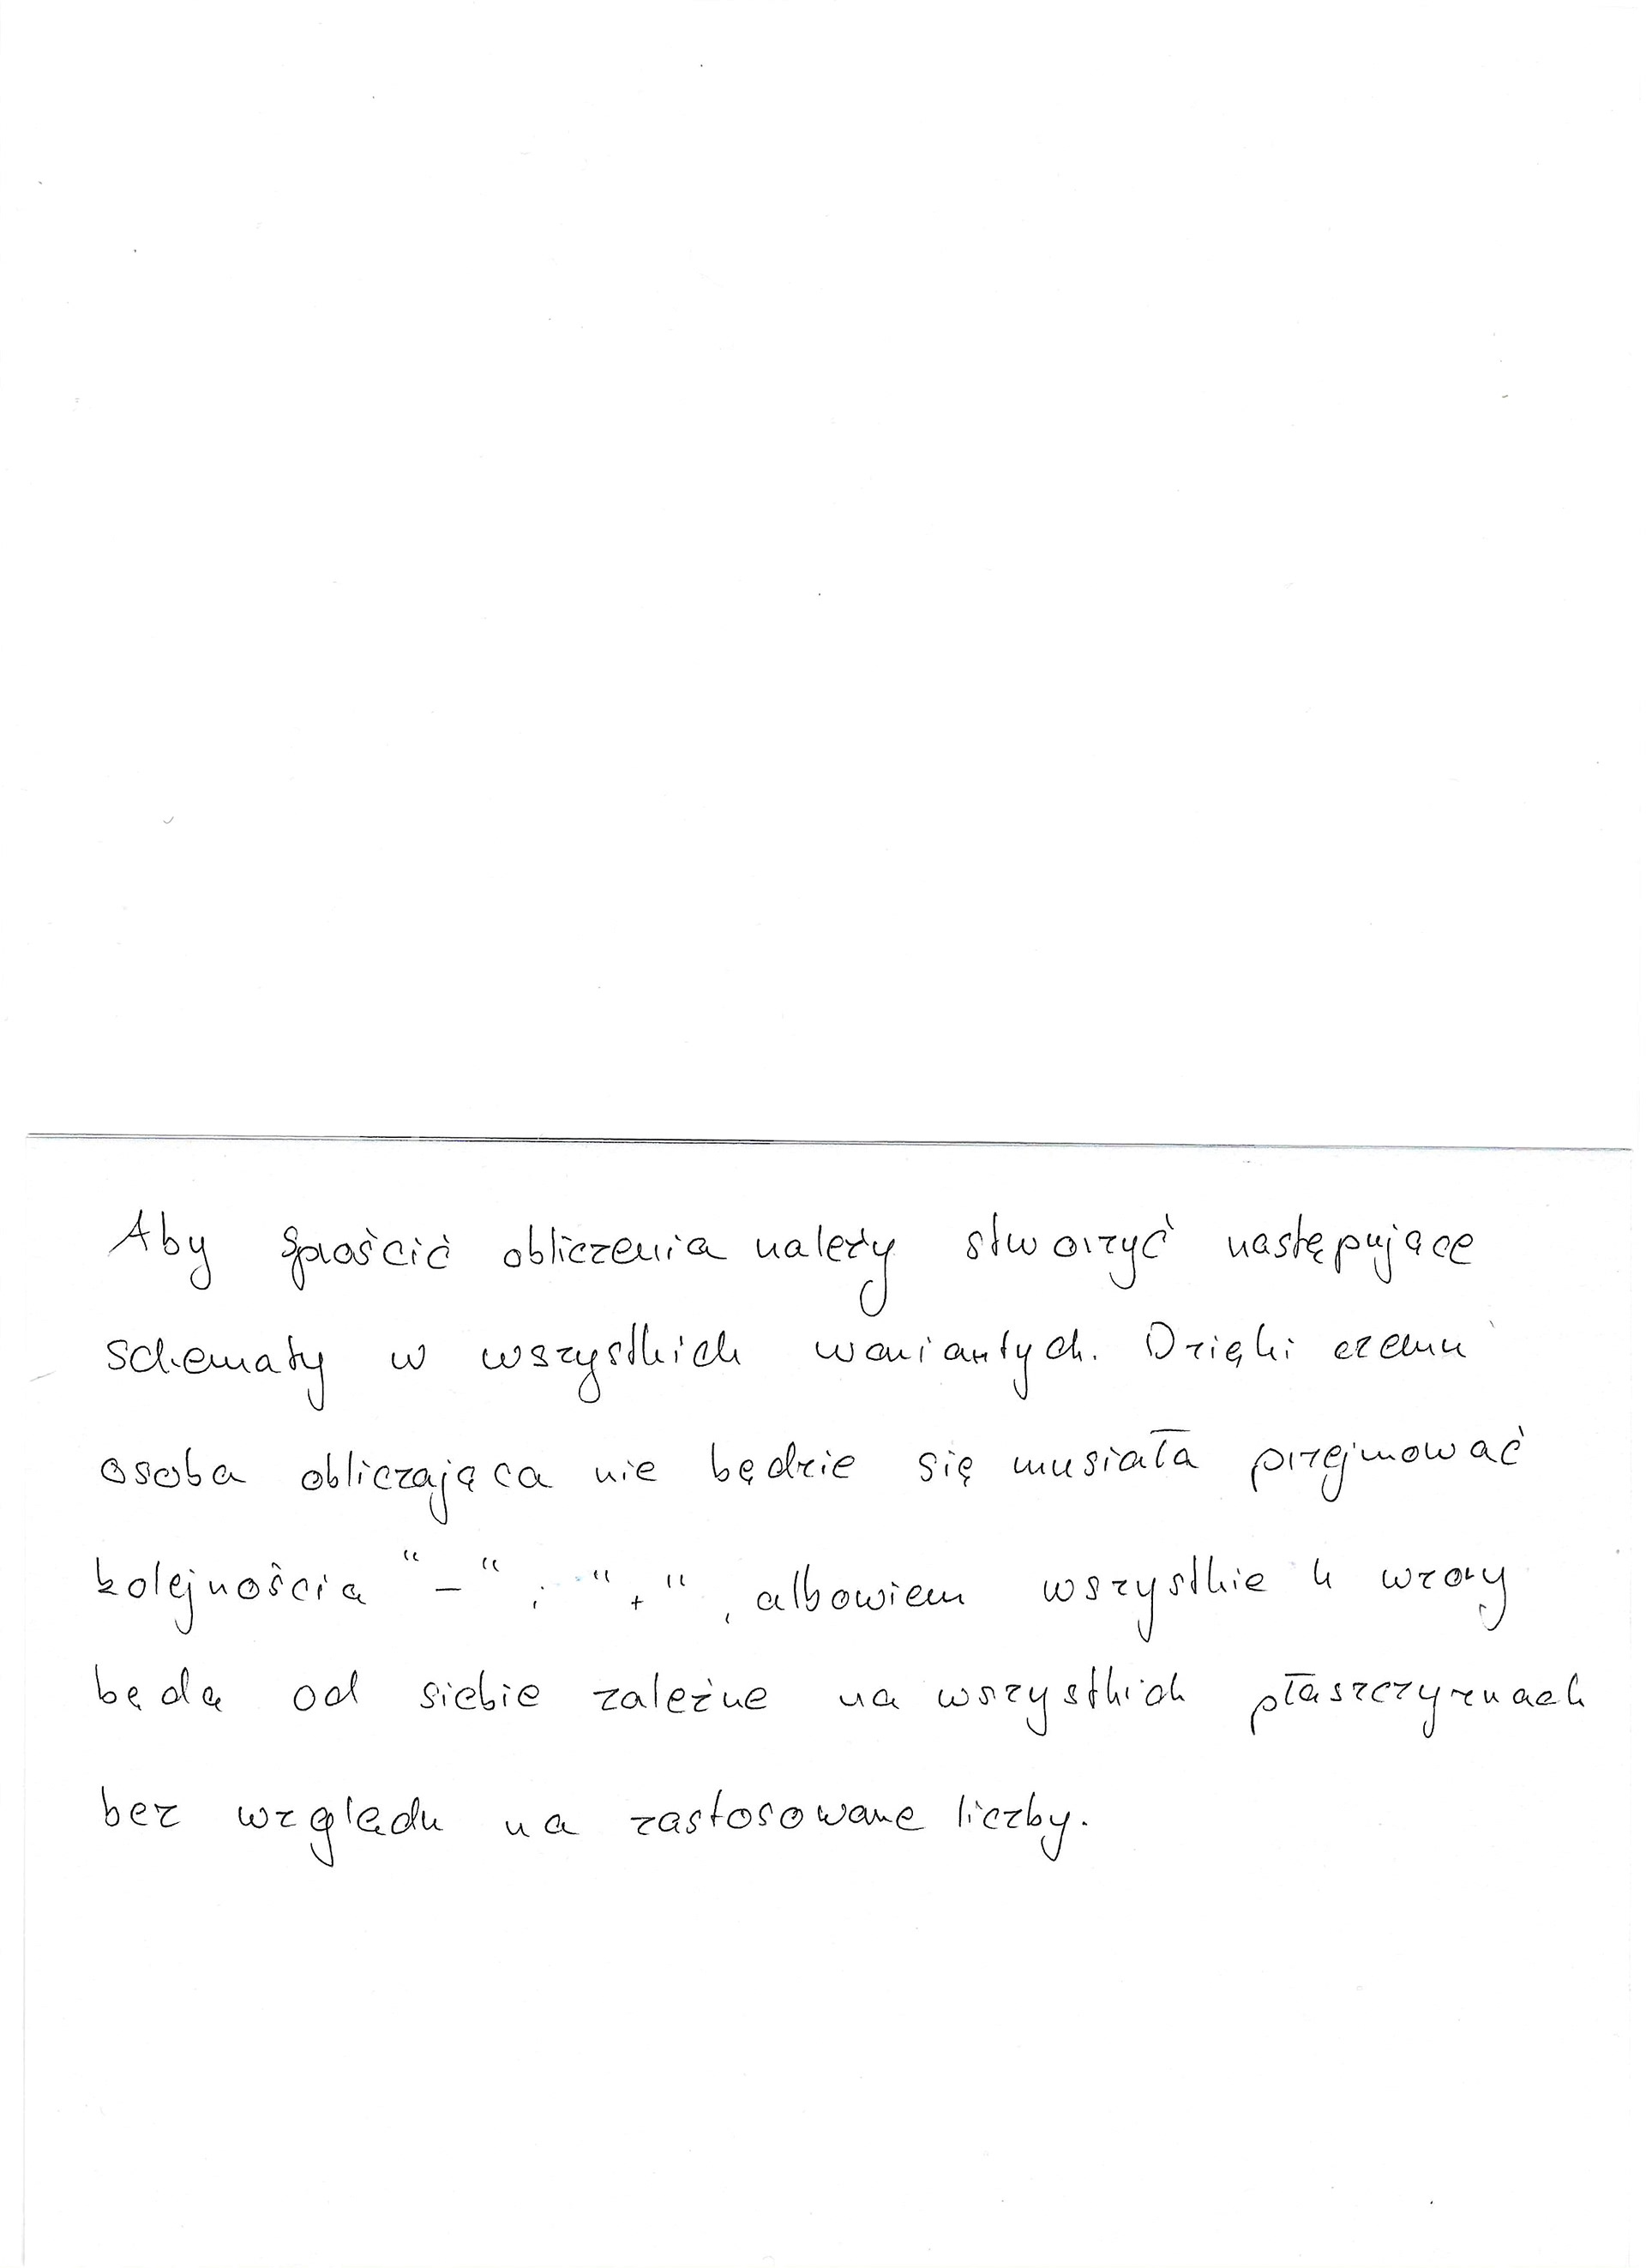 Aby sprościć obliczenia należy stworzyć następujące
schematy w wszystkich wariantych. Dzięki czemu
osoba obliczająca nie będzie się musiała przejmować
kolejnością "-" ; "+", albowiem wszystkie 4 wzory
będą od siebie zależne na wszystkich płaszczyznach
bez względu na zastosowane liczby.